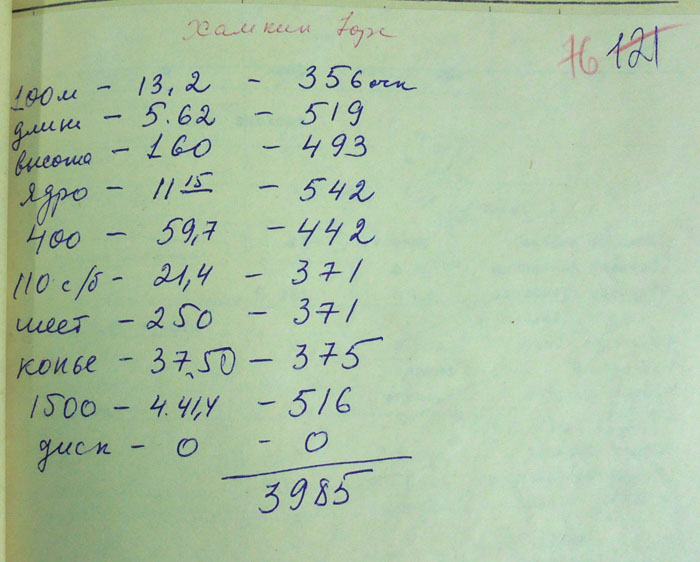 Хамкин Юрх
76 121
100м - 13,2 - 356 очк
длина - 5.62 - 519
высота - 160 - 493
ядро - 11 15 - 542
400 - 59,7 - 442
110 с/б - 21,4 - 371
шест - 250 - 371
копье - 37,50 - 375
1500 - 4.41,4 - 516
диск - 0 - 0
3985